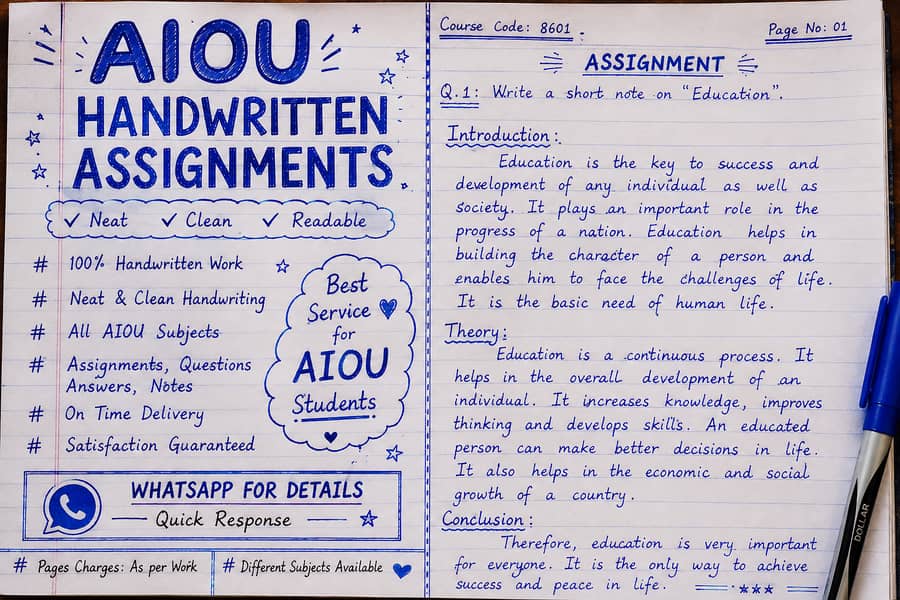 AIOU
HANDWRITTEN
ASSIGNMENTS
✓ Neat ✓ Clean ✓ Readable
# 100% Handwritten Work
# Neat & Clean Handwriting
# All AIOU Subjects
# Assignments, Questions
Answers, Notes
# On Time Delivery
# Satisfaction Guaranteed
Best
Service
for
AIOU
Students
WHATSAPP FOR DETAILS
Quick Response
# Pages Charges: As per Work
# Different Subjects Available
Course Code: 8601
Page No: 01
ASSIGNMENT
Q.1: Write a short note on "Education".
Introduction:
Education is the key to success and
development of any individual as well as
society. It plays an important role in the
progress of a nation. Education helps in
building the character of a person and
enables him to face the challenges of life.
It is the basic need of human life.
Theory:
Education is a continuous process. It
helps in the overall development of an
individual. It increases knowledge, improves
thinking and develops skills. An educated
person can make better decisions in life.
It also helps in the economic and social
growth of a country.
Conclusion:
Therefore, education is very important
for everyone. It is the only way to achieve
success and peace in life.
DOLLAR